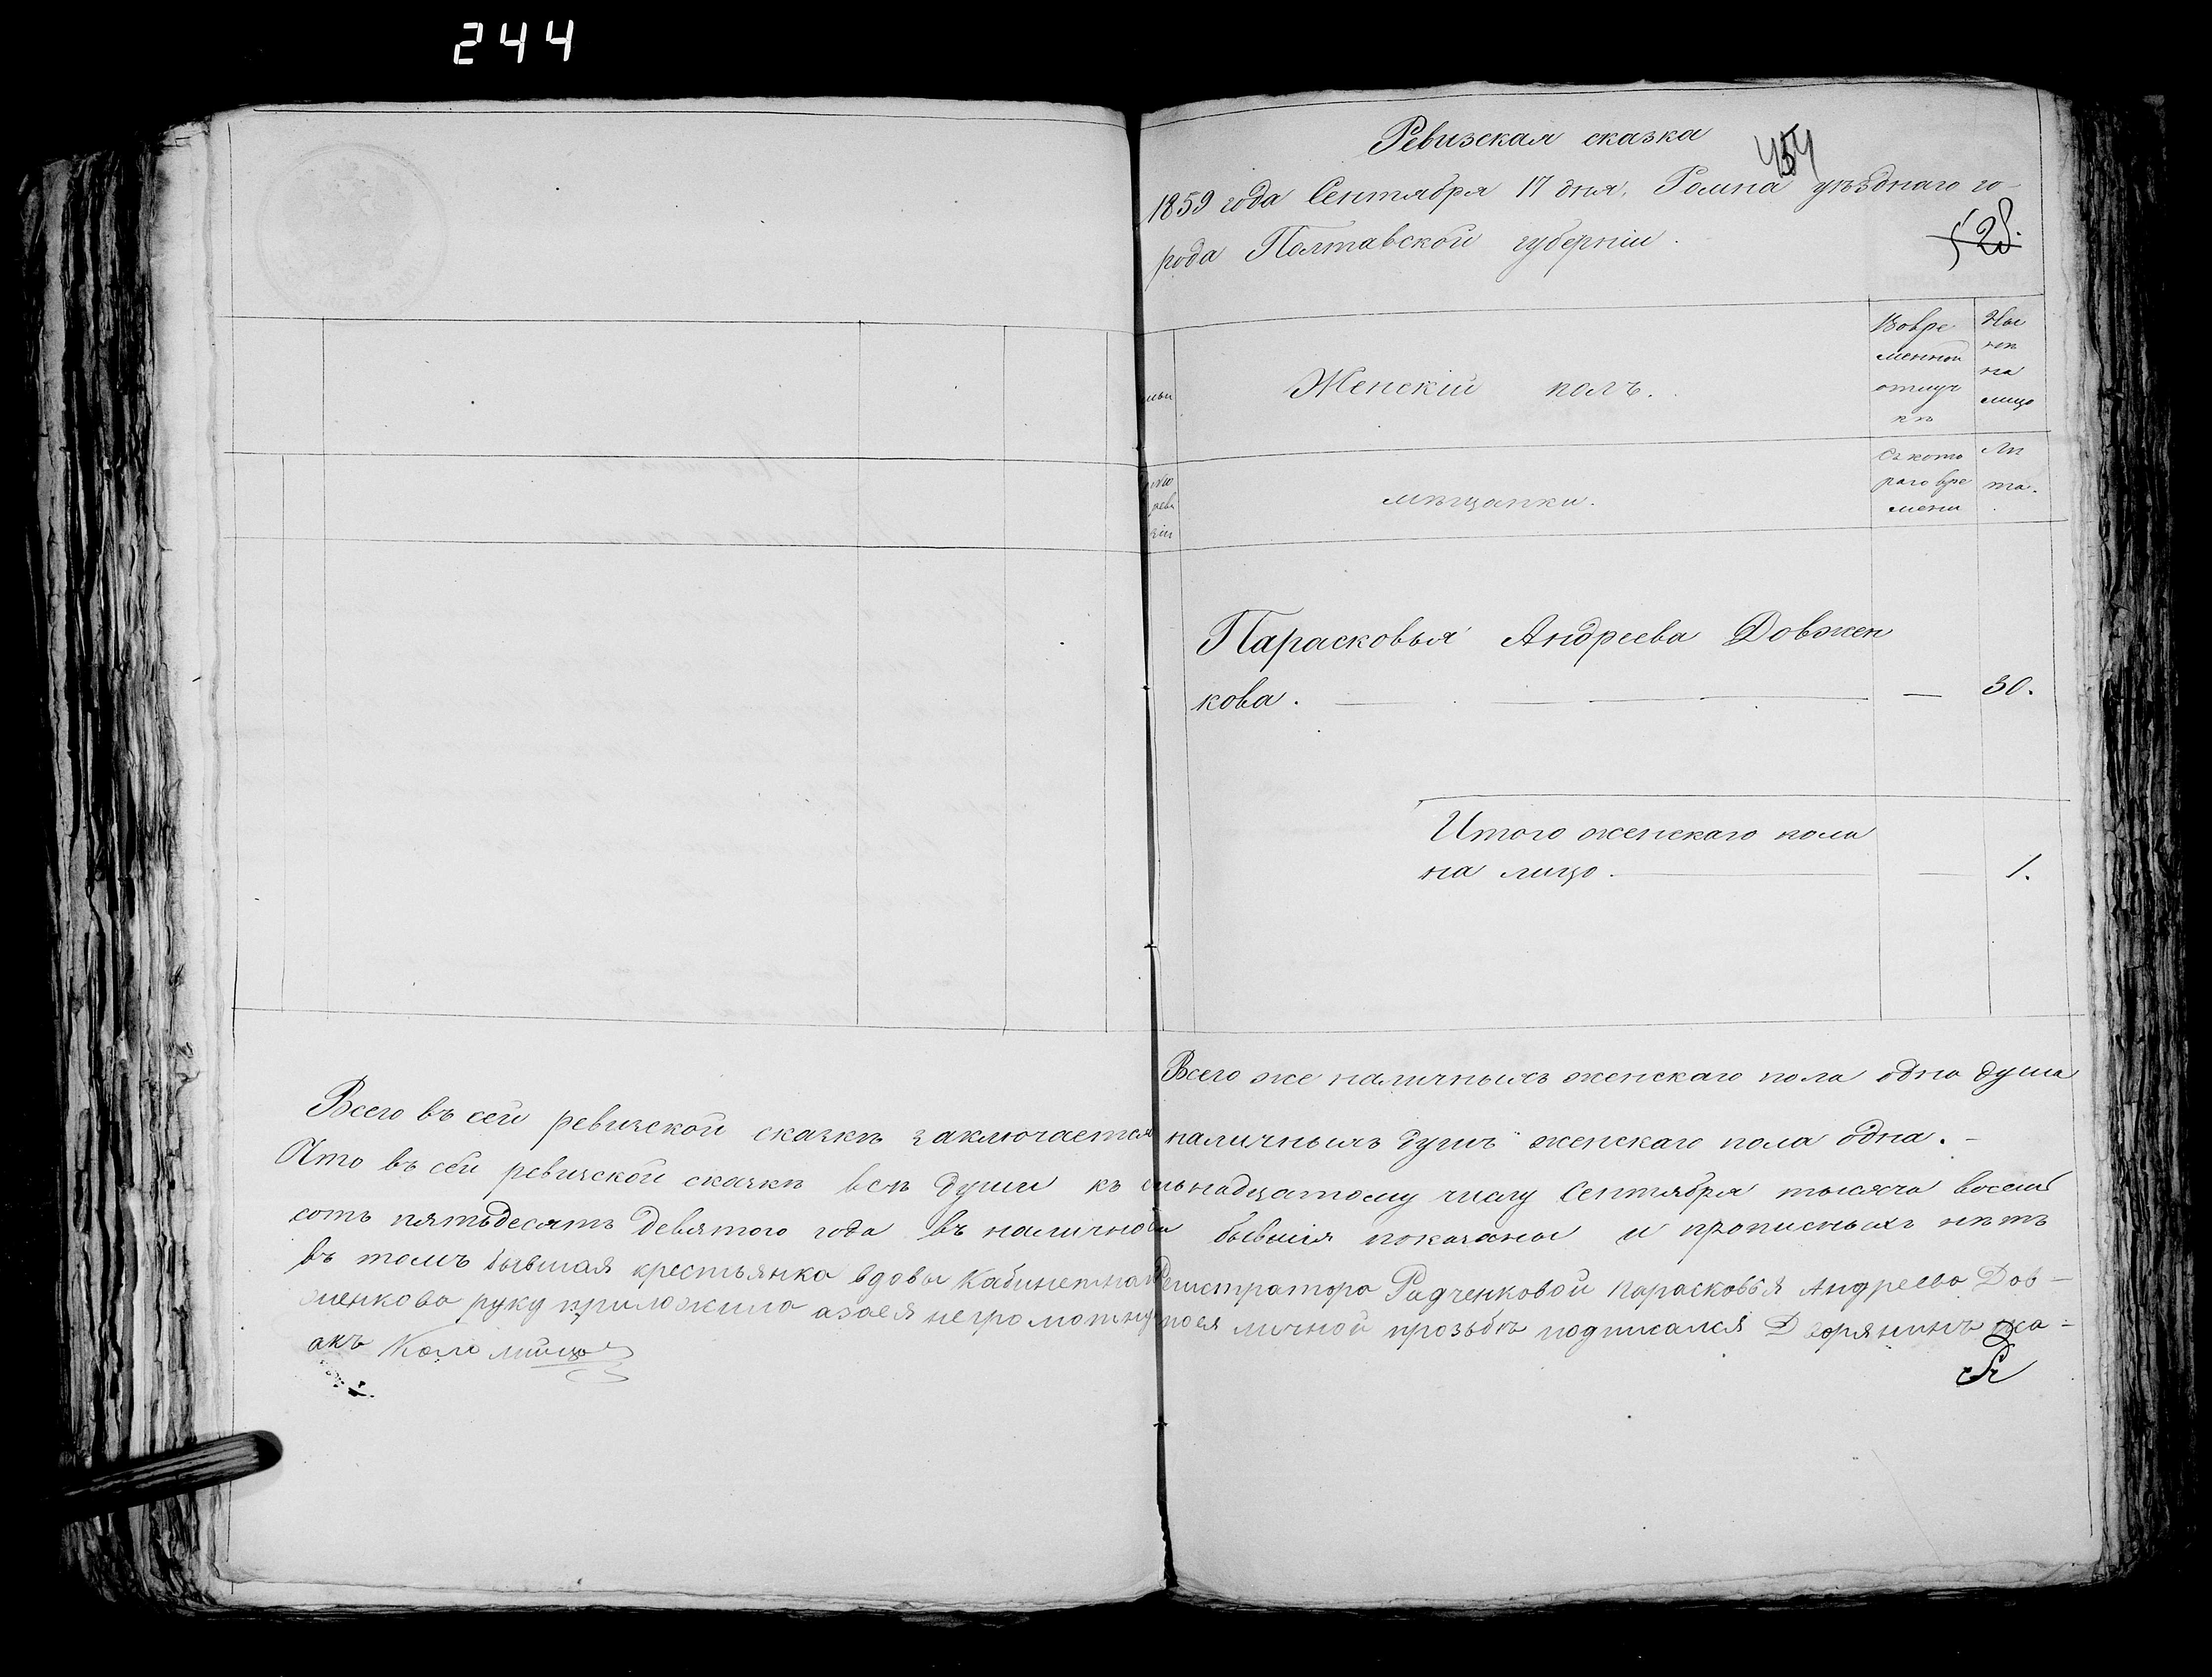 244
Ревизская сказка
454
1859 года Сентября 17 дня. Ромна уѣзднаго го-
рода Полтавской губерніи.
Женскій полъ.
Вовре
менной
отлуч
кѣ
Ны
нѣ
на
лицо
мѣщанки.
Съ кото
раго вре
мени
Лѣ
та.
Парасковья Андреева Довжен
кова. — 30.
Итого женскаго пола
на лицо. — 1.
Всего же наличныхъ женскаго пола одна душа
Всего въ сей ревизской сказкѣ заключается наличныхъ душъ женскаго пола одна.-
Что въ сей ревизской сказкѣ всѣ души къ надцатому числу Сентября тысяча восемь
сотъ пятьдесятъ девятого года въ налично бывшія показаны и прописныхъ нѣтъ
въ томъ бывшая крестьянка вдовы Кабинетна Регистратора Радченковой Парасковья Андреева Дов-
женкова руку приложила а за ея личной прозьбѣ подписался Дворянинъ
Коломійцо